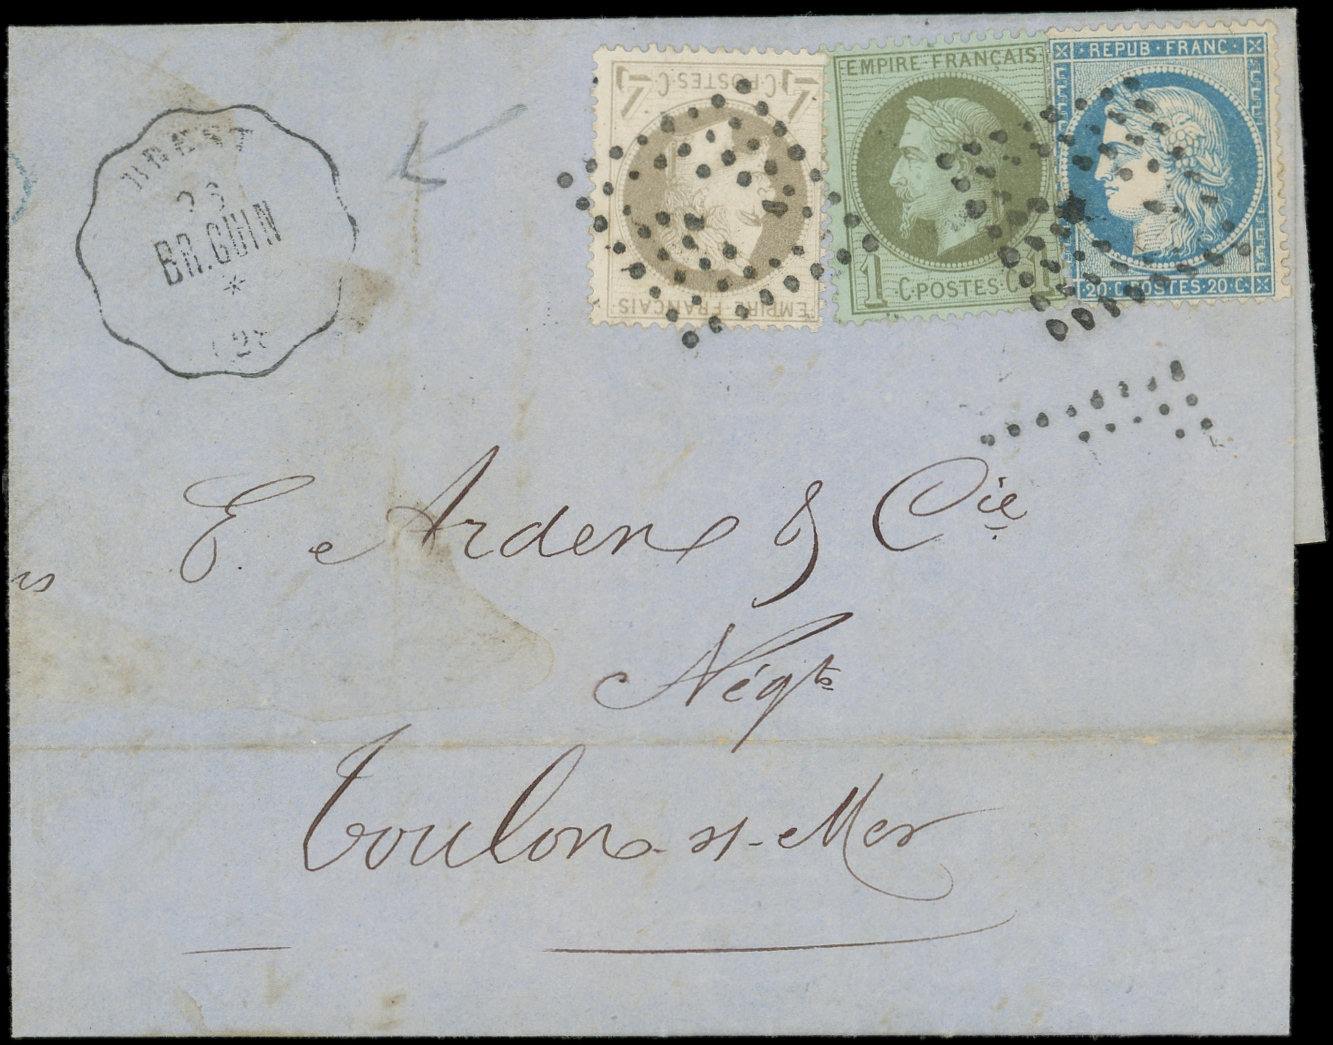 BREST
26
BR.GUIN
*
4 C·POSTES·C 4
EMPIRE FRANÇAIS
EMPIRE FRANÇAIS
1 C·POSTES·C 1
REPUB·FRANC
20·C·POSTES·20·C
E. Arden & Cie
Négts
Toulon-s/-Mer